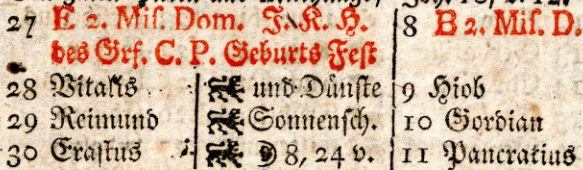 27 E 2. Miſ. Dom. J. K. H. 8 B 2. Miſ. D.
des Grf. C. P. Geburts Feſt
28 Vitalis und Dünſte 9 Hiob
29 Reimund Sonnenſch. 10 Gordian
30 Eraſtus 8, 24 v. 11 Pancratius